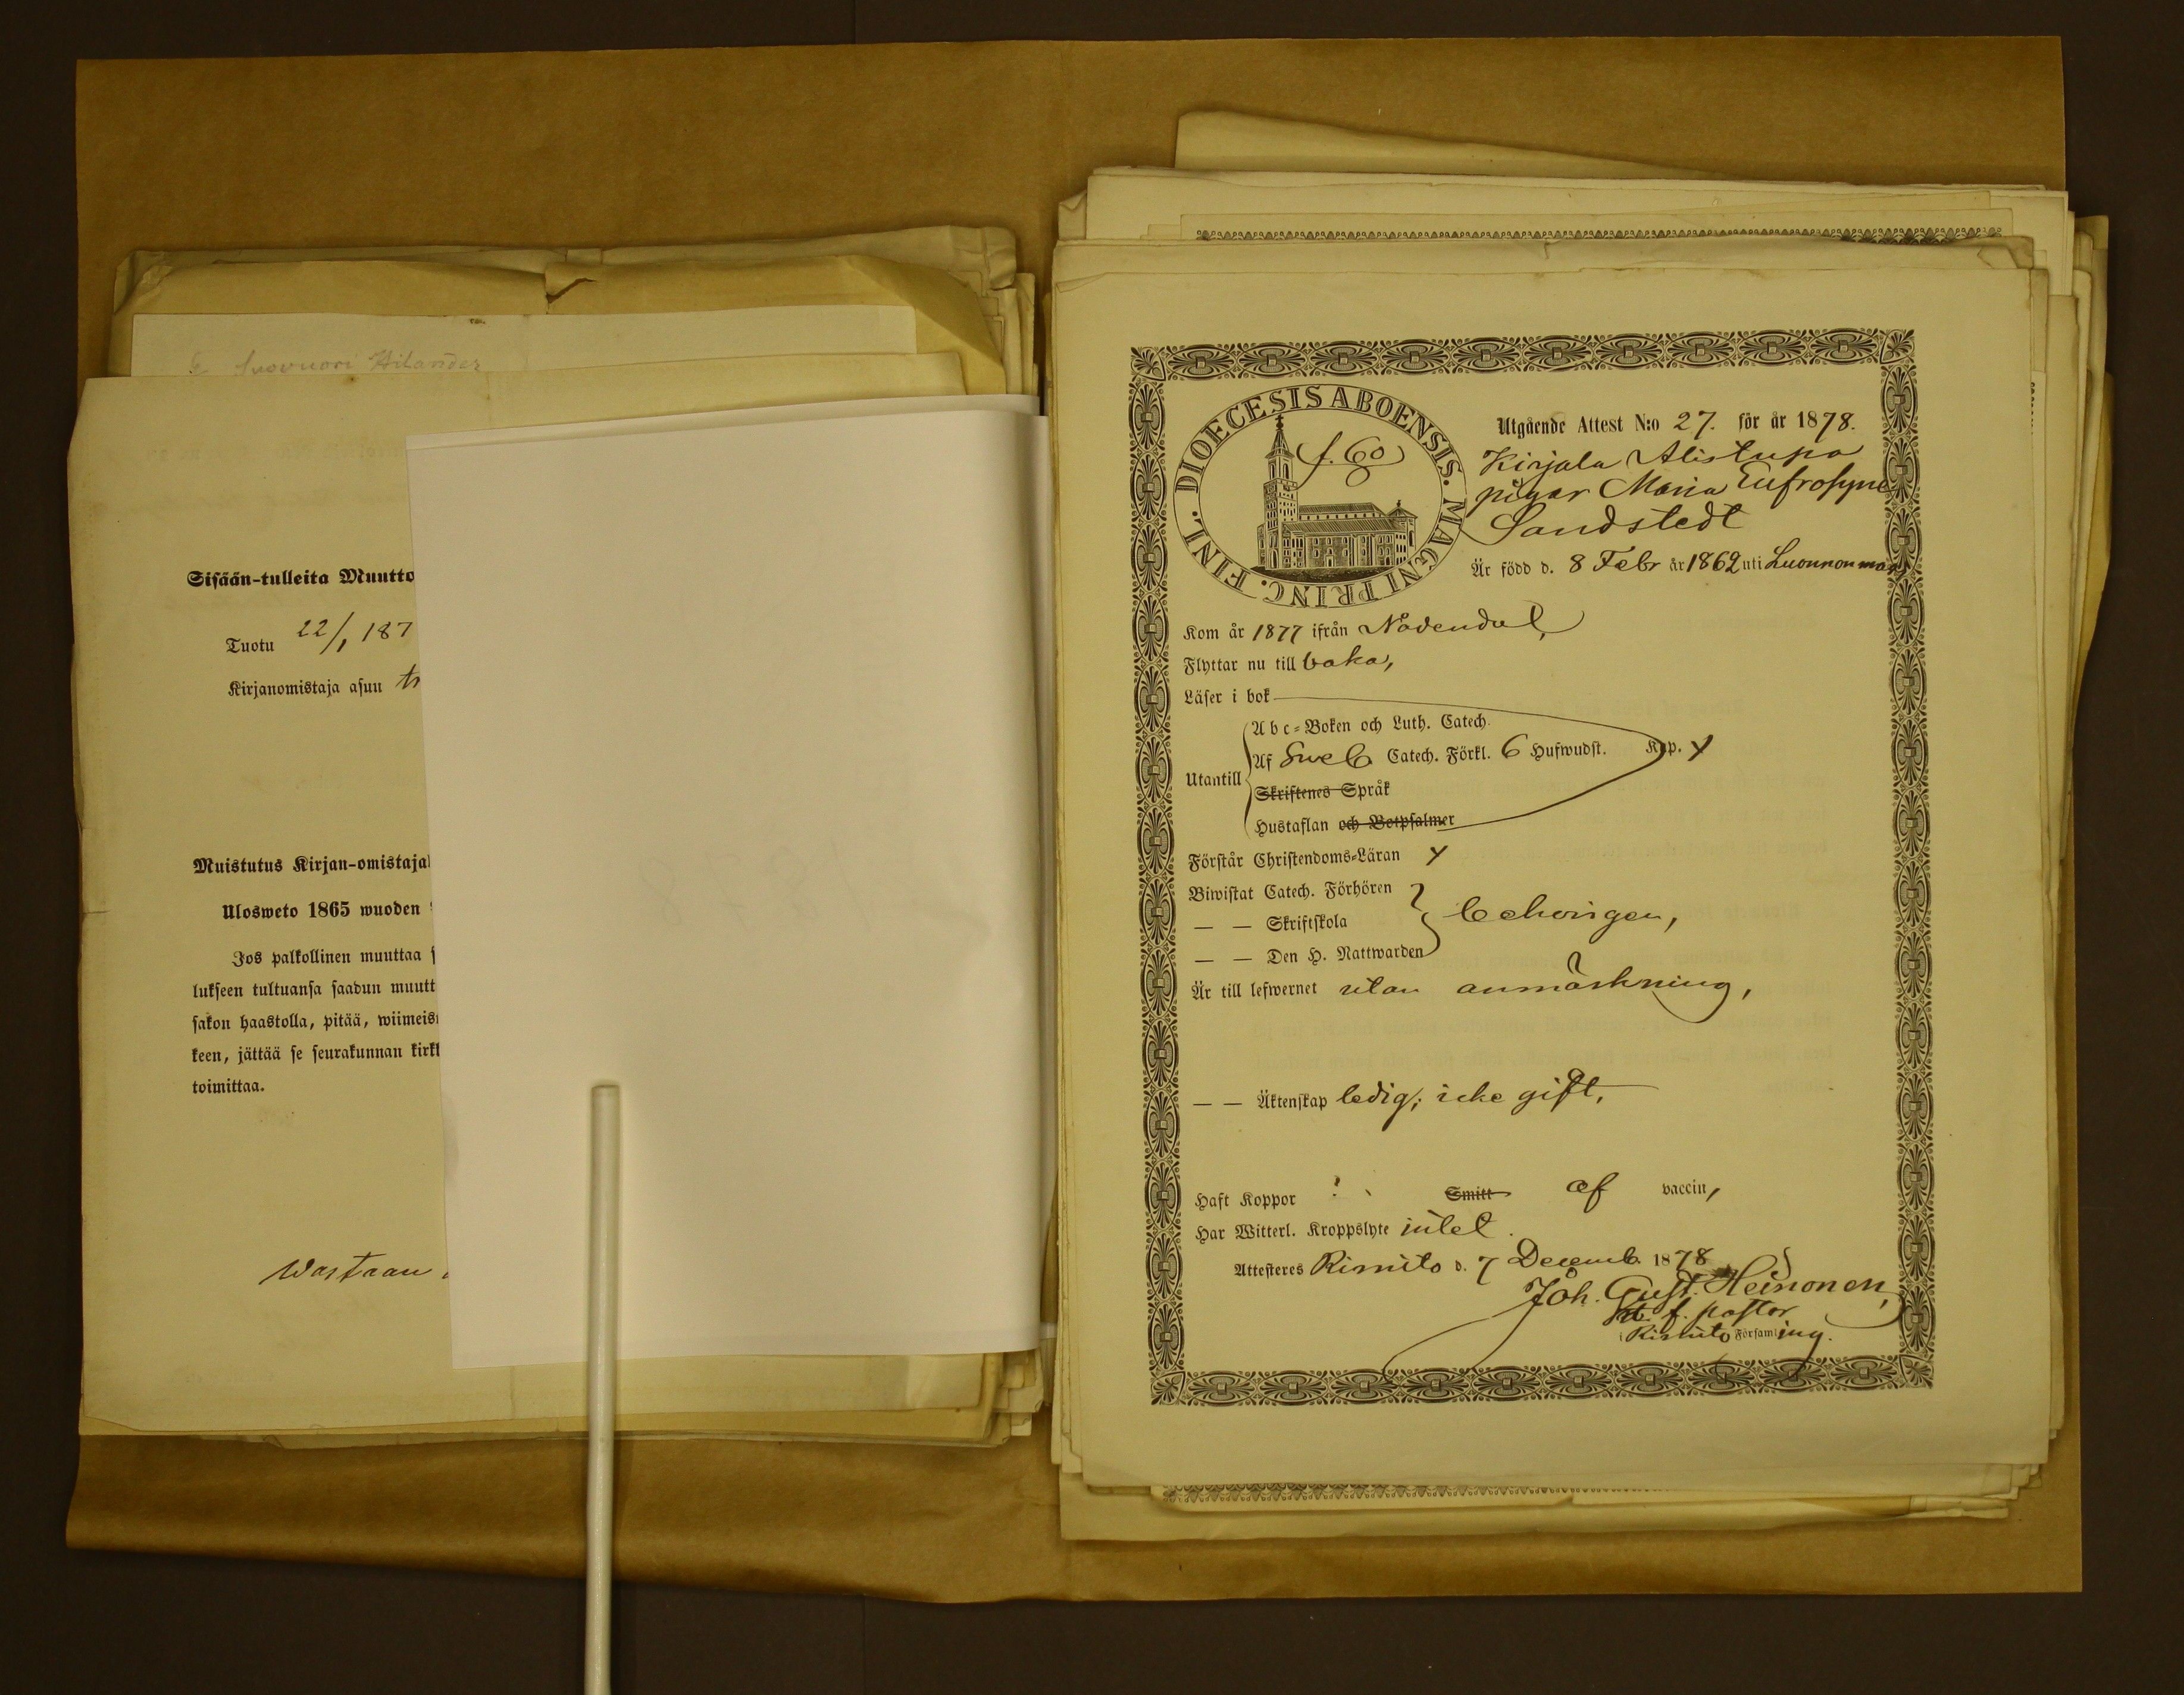 Suovuori Hilander
Sisään-tulleita Muutto
Tuotu 22/1 187
Kirjanomistaja asuu
Muistutus Kirjan-omistajal
Ulosweto 1865 wuoden
Jos palkollinen muuttaa s
lukseen tultuansa saadun muutt
sakon haastolla, pitää, wiimeis
keen, jättää se seurakunnan kirk
toimittaa.
Wastaan
DIOECESIS ABOENSIS. MAGNI PRINC. FINL.
f. 60
Utgående Attest N:o 27. för år 1878.
Kirjala Alistupa
pigan Maria Eufrosyne
Sandstedt
Är född d. 8 Febr år 1862 uti Luonnonmaa
Kom år 1877 ifrån Nådendal,
Flyttar nu till baka,
Läser i bok
Utantill
Abc-Boken och Luth. Catech.
Af Sweb. Catech. Förkl. 6 Hufwudst. Kap. x
Skriftenes Språk
Hustaflan och Botpsalmer
Förstår Christendoms-Läran x
Biwistat Catech. Förhören
— — Skriftskola behörigen,
— — Den H. Nattwarden
Är till lefwernet utan anmärkning,
— — Äktenskap ledig; icke gift,
Haft Koppor Smitt af vaccin,
Har Witterl. Kroppslyte intet.
Attesteres Rimito d. 7 Decemb. 1878
Joh. Gust. Heinonen,
f. pastor
i Rimito Församling.